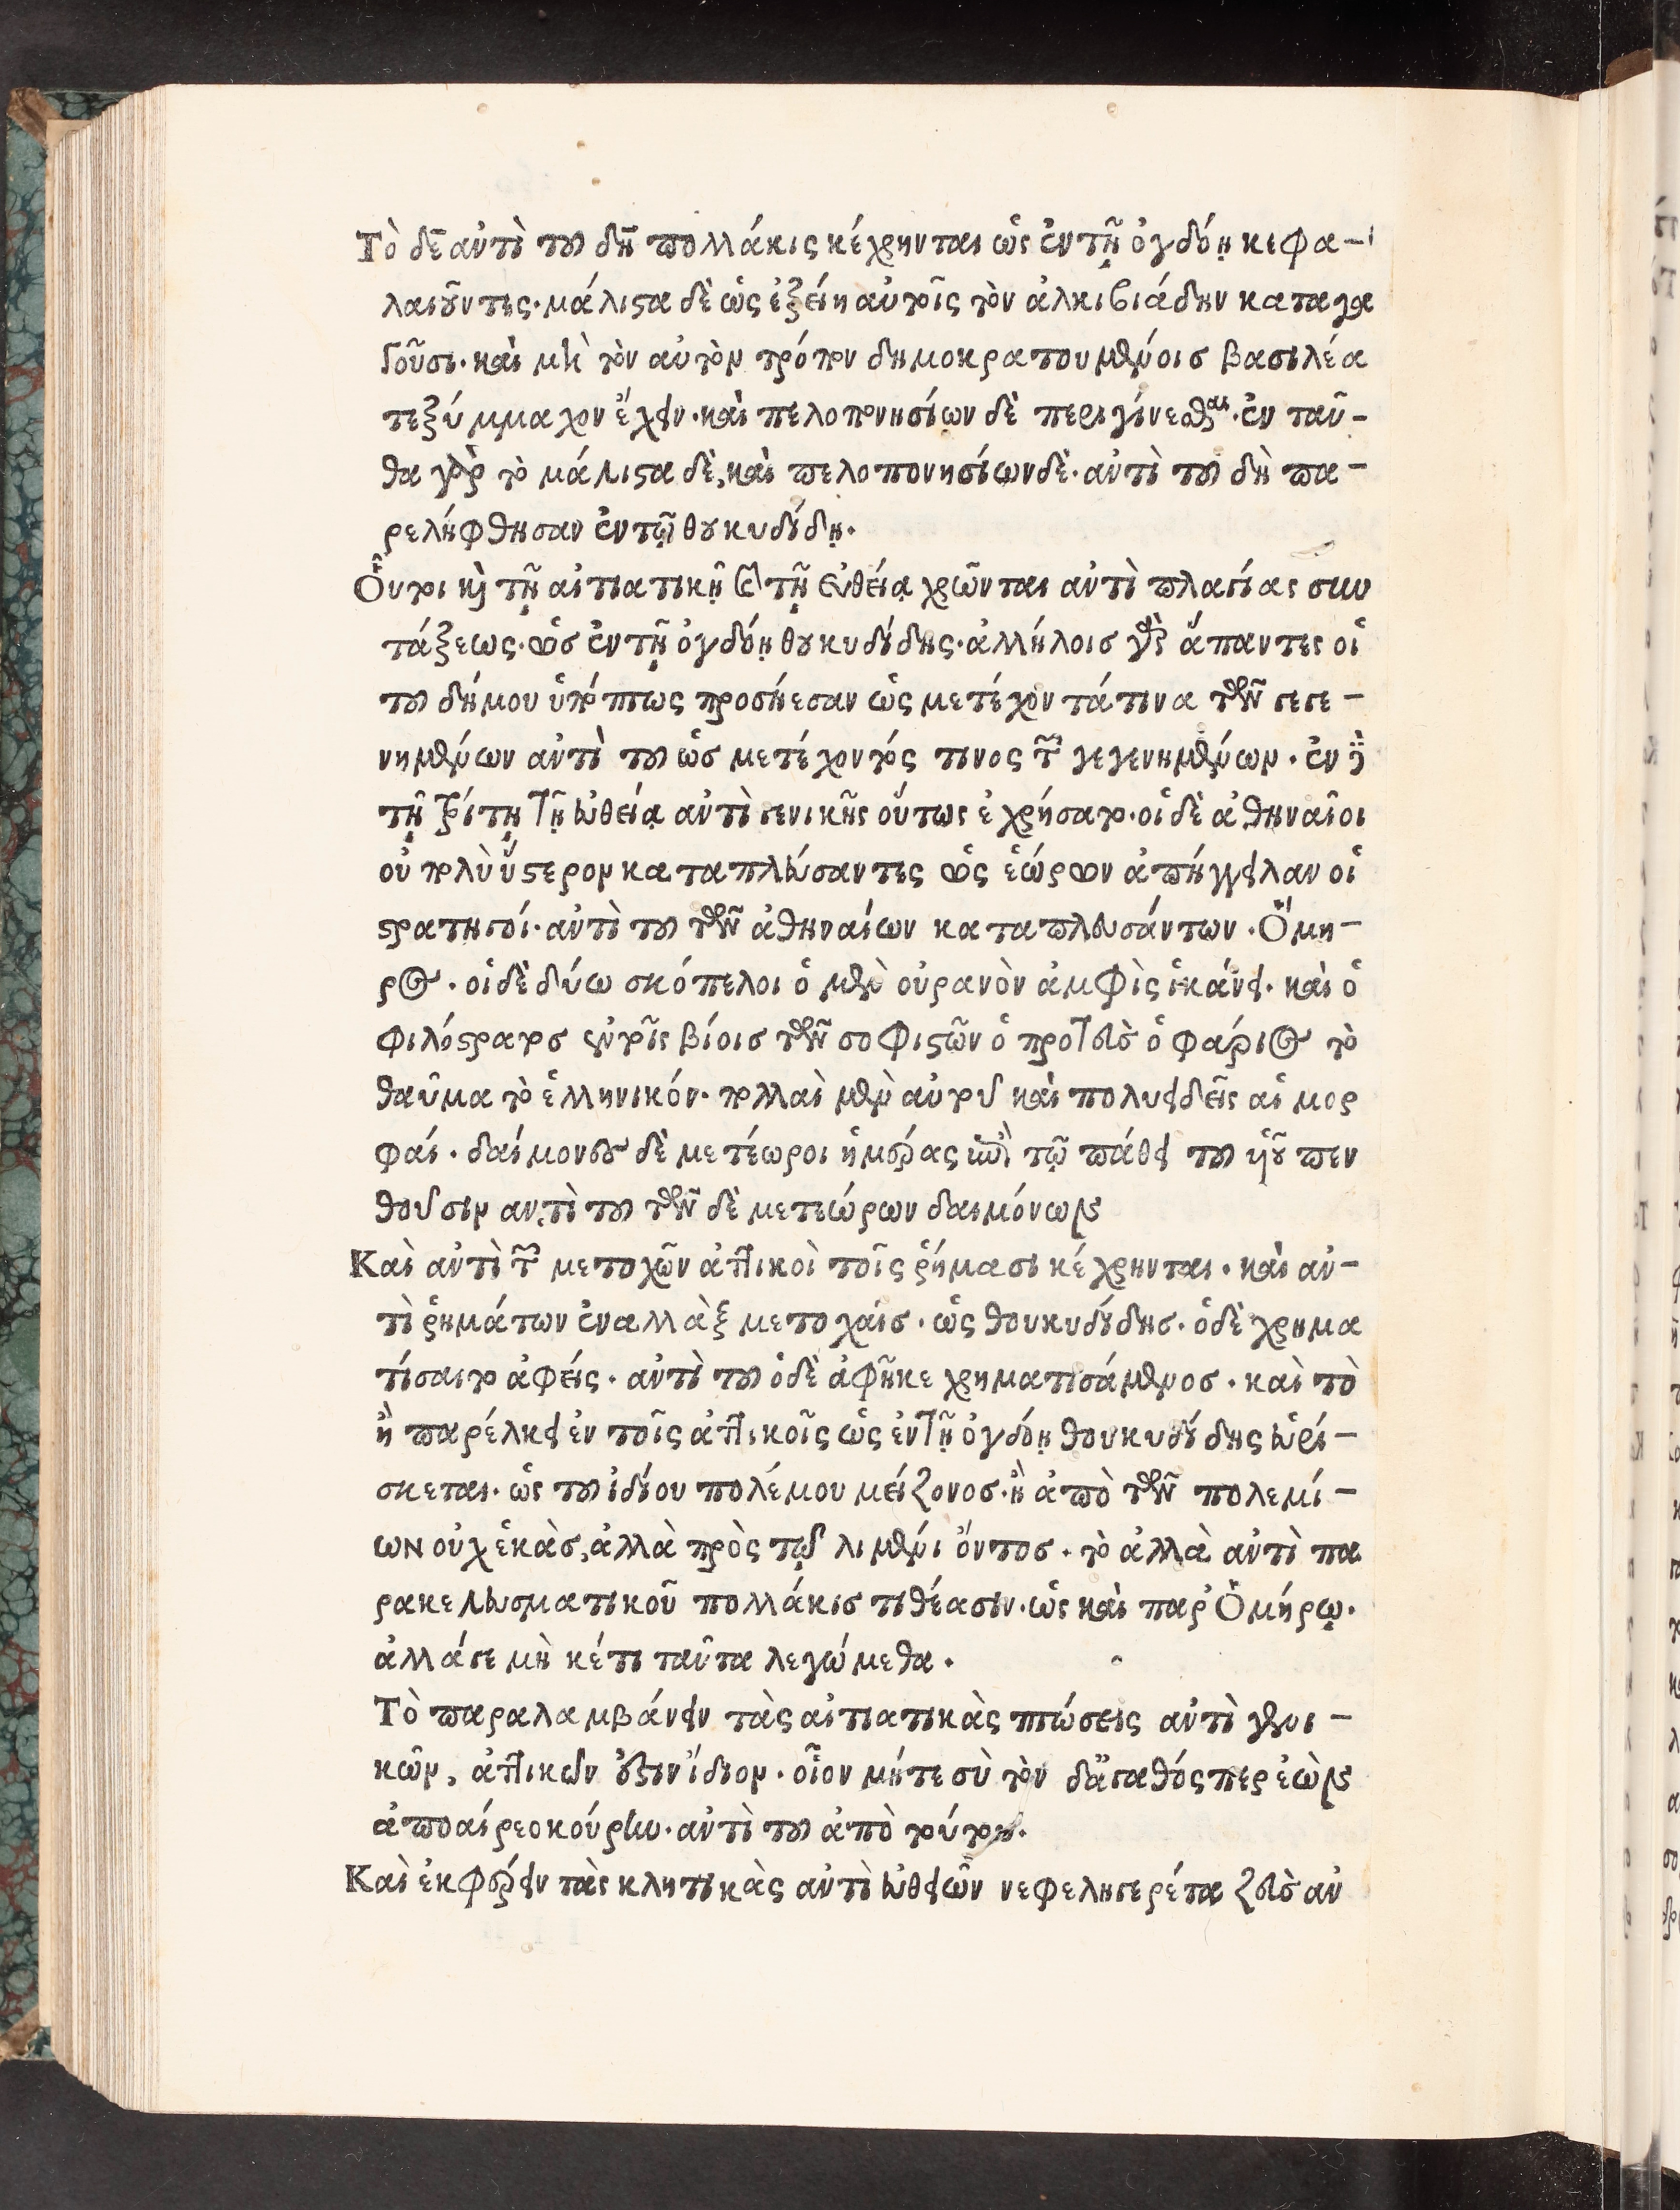 Τὸ δὲ ἀντὶ τοῦ δὴ πολλάκις κέχρηνται ὡς ἐν τῇ ὀγδόῃ κεφα-
λαιοῦντες· μάλιστα δὲ ὡς ἐξείη αὐτοῖς τὸν ἀλκιβιάδην κατάγα
γοῦσι· καὶ μὴ τὸν αὐτὸν τρόπον δημοκρατουμένοισ βασιλέα
τεξύμμαχον ἔχειν· καὶ πελοπονησίων δὲ περιγίνεσθαι· ἐν ταῦ-
θα γὰρ τὸ μάλιστα δὲ, καὶ πελοπονησίων δὲ· ἀντὶ τοῦ δὴ πα-
ρελήφθησαν ἐν τῷ θουκυδίδῃ·
Οὗτοι καὶ τῇ αἰτιατικῇ καὶ τῇ εὐθείᾳ χρῶνται ἀντὶ πλαγίας συν
τάξεως· ὡσ ἐν τῇ ὀγδόῃ θουκυδίδης· ἀλλήλοισ γὰρ ἅπαντες οἱ
τοῦ δήμου ὑπόπτως προσήεσαν ὡς μετέχοντά τινα τῶν γεγε-
νημένων ἀντὶ τοῦ ὡσ μετέχοντός τινος τῶν γεγενημένων· ἐν δὲ
τῇ τρίτῃ τῇ εὐθείᾳ ἀντὶ γενικῆς οὕτως ἐχρήσατο· οἱ δὲ ἀθηναῖοι
οὐ πολὺ ὕστερον καταπλεύσαντες ὡς ἑώρων ἀπήγγειλαν οἱ
στρατηγοί· ἀντὶ τοῦ τῶν ἀθηναίων καταπλευσάντων· Ὅμη-
ρος· οἱ δὲ δύω σκόπελοι ὁ μὲν οὐρανὸν ἀμφὶς ἱκάνει· καὶ ὁ
φιλόστρατοσ ἐν τοῖς βίοισ τῶν σοφιστῶν ὁ πρωτεὺς ὁ φάριος τὸ
θαῦμα τὸ ἑλληνικόν· πολλαὶ μὲν αὐτοῦ καὶ πολυειδεῖς αἱ μορ
φαί· δαίμονες δὲ μετέωροι ἡμέρας ἐπὶ τῷ πάθει τοῦ υἱοῦ πεν
θοῦσιν ἀντὶ τοῦ τῶν δὲ μετεώρων δαιμόνων
Καὶ ἀντὶ τῶν μετοχῶν ἀττικοὶ τοῖς ῥήμασι κέχρηνται· καὶ ἀν-
τὶ ῥημάτων ἐναλλὰξ μετοχαίσ· ὡς θουκυδίδησ· ὁ δὲ χρημα
τίσαιτο ἀφείς· ἀντὶ τοῦ ὁ δὲ ἀφῆκε χρηματισάμενοσ· καὶ τὸ
ἢ παρέλκει ἐν τοῖς ἀττικοῖς ὡς ἐν τῇ ὀγδόῃ θουκυδίδης εὑρί-
σκεται· ὡς τοῦ ἰδίου πολέμου μείζονοσ· ἢ ἀπὸ τῶν πολεμί-
ων οὐχ ἑκὰσ, ἀλλὰ πρὸς τῷ λιμένι ὄντοσ· τὸ ἀλλὰ ἀντὶ πα
ρακελευσματικοῦ πολλάκισ τιθέασιν· ὡς καὶ παρ Ὁμήρῳ·
ἀλλάγε μὴ κέτι ταῦτα λεγώμεθα·
Τὸ παραλαμβάνειν τὰς αἰτιατικὰς πτώσεις ἀντὶ γενι-
κῶν, ἀττικῶν ἐστὶν ἴδιον· οἷον μήτε σὺ τὸν δἄγαθός περ ἐὼν
ἀποαίρεο κούρην· ἀντὶ τοῦ ἀπὸ τούτου·
Καὶ ἐκφέρειν τὰς κλητικὰς ἀντὶ εὐθειῶν νεφεληγερέτα ζεὺς ἀν